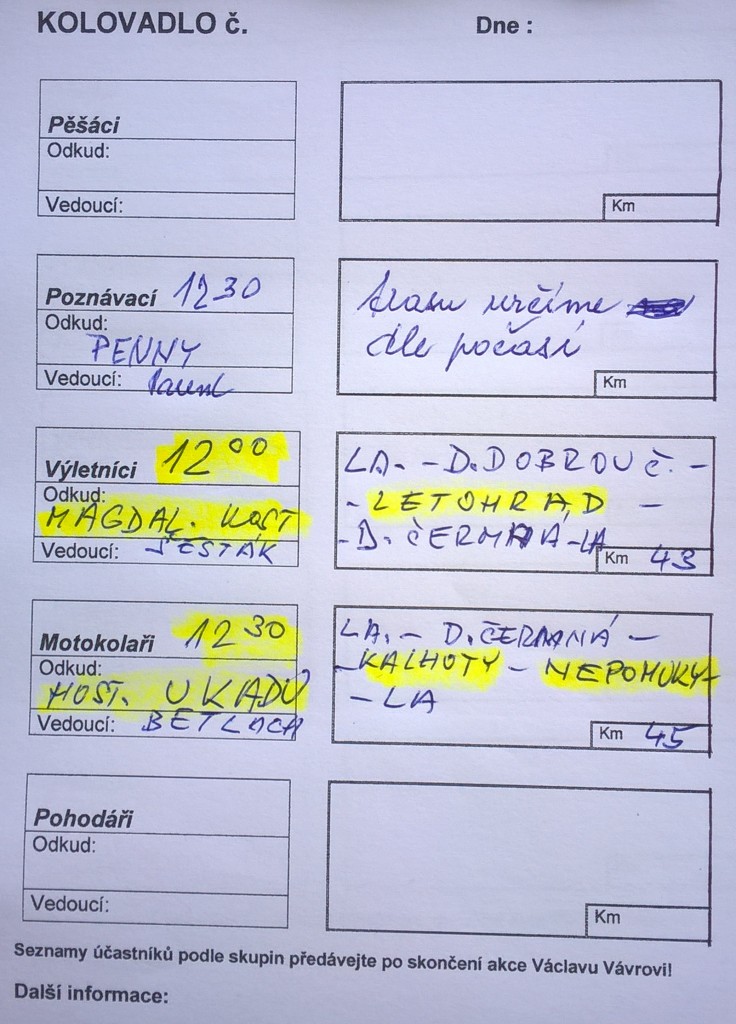 KOLOVADLO č.
Dne :
Pěšáci
Odkud:
Vedoucí:
Km
Poznávací 12 30
Odkud:
PENNY
Vedoucí:
trasu určíme
dle počasí
Km
Výletníci 12 00
Odkud:
MAGDAL. KOST
Vedoucí: ŠESTÁK
LA. - D.DOBROUČ. -
- LETOHRAD -
- D. ČERMNÁ - LA
Km 43
Motokolaři 12 30
Odkud:
HOST. U KADŮ
Vedoucí: BETLACH
LA. - D.ČERMNÁ -
- KALHOTY - NEPOMUKY -
- LA
Km 45
Pohodáři
Odkud:
Vedoucí:
Km
Seznamy účastníků podle skupin předávejte po skončení akce Václavu Vávrovi!
Další informace: